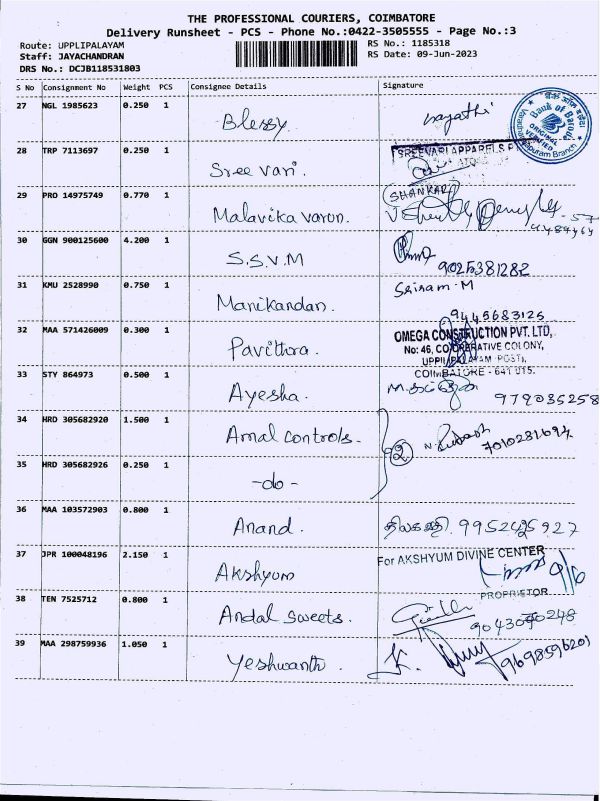 THE PROFESSIONAL COURIERS, COIMBATORE
Delivery Runsheet - PCS - Phone No.:0422-3505555 - Page No.:3
Route: UPPLIPALAYAM
RS No.: 1185318
Staff: JAYACHANDRAN
RS Date: 09-Jun-2023
DRS No.: DCJB118531803
S No Consignment No Weight PCS Consignee Details Signature
27 NGL 1985623 0.250 1 Blessy
Bank of Baroda
ORIGINAL VERIFIED
28 TRP 7113697 0.250 1 Sree vari. SREEVARI APPARELS P
29 PRO 14975749 0.770 1 Malavika varon. SHANKAR
30 GGN 900125600 4.200 1 S.S.V.M 9025381282
31 KMU 2528990 0.750 1 Manikandan. Sriram-M
9445683125
32 MAA 571426009 0.300 1 Pavithra. OMEGA CONSTRUCTION PVT. LTD,
No: 46, CO-OPERATIVE COLONY,
UPPILIPALAYAM POST),
COIMBATORE - 641 015.
33 STY 864973 0.500 1 Ayesha. 979035258
34 HRD 305682920 1.500 1 Amal controls. 2
35 HRD 305682926 0.250 1 -do-
36 MAA 103572903 0.800 1 Anand. 9952425927
37 JPR 100048196 2.150 1 Akshyum For AKSHYUM DIVINE CENTER
PROPRIETOR
38 TEN 7525712 0.800 1 Andal Sweets.
39 MAA 298759936 1.050 1 Yeshwanth.